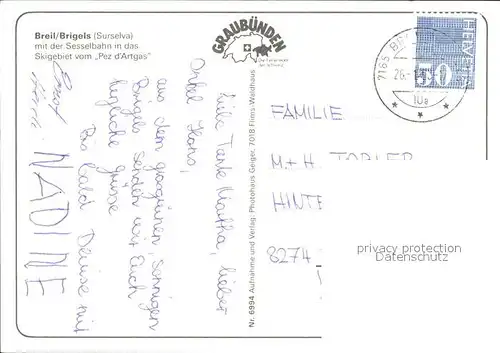 Breil/Brigels (Surselva)
mit der Sesselbahn in das
Skigebiet vom "Pez d'Artgas"
GRAUBÜNDEN
Die Ferienecke
der Schweiz
HELVETIA
50
7165 BR
26.
10a
Liebe Tante Martha, lieber
Onkel Hans,
aus dem grossen, sonnigen
Brigels senden wir Euch
herzliche Grüsse
Bis bald Denise mit
NADINE
Ernst
Nr. 6994 Aufnahme und Verlag: Photohaus Geiger, 7018 Flims Waldhaus
FAMILIE
M + H TOBLER
HINTE
8274
privacy protection
Datenschutz